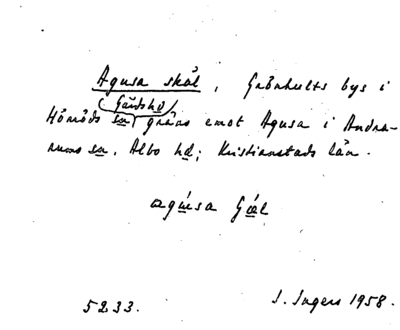 Agusa skäl, Grönhults bys i
(Gärds hd)
Hörröds sn gräns emot Agusa i Andra-
rums sn. Albo hd; Kristianstads län.
agúsa
5233. I. Ingers 1958.